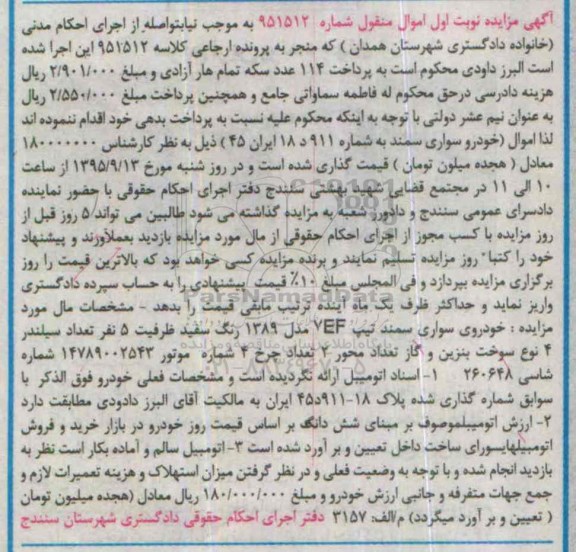 آگهی مزایده نوبت اول اموال منقول شماره ۹۵۱۵۱۲ به موجب نیابتواصله از اجرای احکام مدنی
(خانواده دادگستری شهرستان همدان ) که منجر به پرونده ارجاعی کلاسه ۹۵۱۵۱۲ این اجرا شده
است البرز داودی محکوم است به پرداخت ۱۱۴ عدد سکه تمام هار آزادی و مبلغ ۲/۹۰۱/۰۰۰ ریال
هزینه دادرسی درحق محکوم له فاطمه سماواتی جامع و همچنین پرداخت مبلغ ۲/۵۵۰/۰۰۰ ریال
به عنوان نیم عشر دولتی با توجه به اینکه محکوم علیه نسبت به پرداخت بدهی خود اقدام ننموده اند
لذا اموال (خودرو سواری سمند به شماره ۹۱۱ د ۱۸ ایران ۴۵ ) ذیل به نظر کارشناس ۱۸۰۰۰۰۰۰۰
معادل ( هجده میلون تومان ) قیمت گذاری شده است و در روز شنبه مورخ ۱۳۹۵/۹/۱۳ از ساعت
۱۰ الی ۱۱ در مجتمع قضایی شهید بهشتی سنندج دفتر اجرای احکام حقوقی با حضور نماینده
دادسرای عمومی سنندج و دادورز شعبه به مزایده گذاشته می شود طالبین می تواند ۵ روز قبل از
روز مزایده با کسب مجوز از اجرای احکام حقوقی از مال مورد مزایده بازدید بعملآورند و پیشنهاد
خود را کتبا" روز مزایده تسلیم نمایند و برنده مزایده کسی خواهد بود که بالاترین قیمت را روز
برگزاری مزایده بپردازد و فی المجلس مبلغ ۱۰٪ قیمت پیشنهادی را به حساب سپرده دادگستری
واریز نماید و حداکثر ظرف یک ماه آینده ترتیب مابقی قیمت را بدهد - مشخصات مال مورد
مزایده : خودروی سواری سمند تیپ VEF مدل ۱۳۸۹ رنگ سفید ظرفیت ۵ نفر تعداد سیلندر
۴ نوع سوخت بنزین و گاز تعداد محور ۲ تعداد چرخ ۴ شماره موتور ۱۴۷۸۹۰۰۲۵۴۳ شماره
شاسی ۲۶۰۶۴۸ ۱- اسناد اتومبیل ارائه نگردیده است و مشخصات فعلی خودرو فوق الذکر با
سوابق شماره گذاری شده پلاک ۱۸-۹۱۱د۴۵ ایران به مالکیت آقای البرز دادودی مطابقت دارد
۲- ارزش اتومبیلموصوف بر مبنای شش دانگ بر اساس قیمت روز خودرو در بازار خرید و فروش
اتومبیلهایسورای ساخت داخل تعیین و بر آورد شده است ۳- اتومبیل سالم و آماده بکار است نظر به
بازدید انجام شده و با توجه به وضعیت فعلی و در نظر گرفتن میزان استهلاک و هزینه تعمیرات لازم و
جمع جهات متفرقه و جانبی ارزش خودرو و مبلغ ۱۸۰/۰۰۰/۰۰۰ ریال معادل (هجده میلیون تومان
( تعیین و بر آورد میگردد) م/الف: ۳۱۵۷ دفتر اجرای احکام حقوقی دادگستری شهرستان سنندج
ParsNamadData